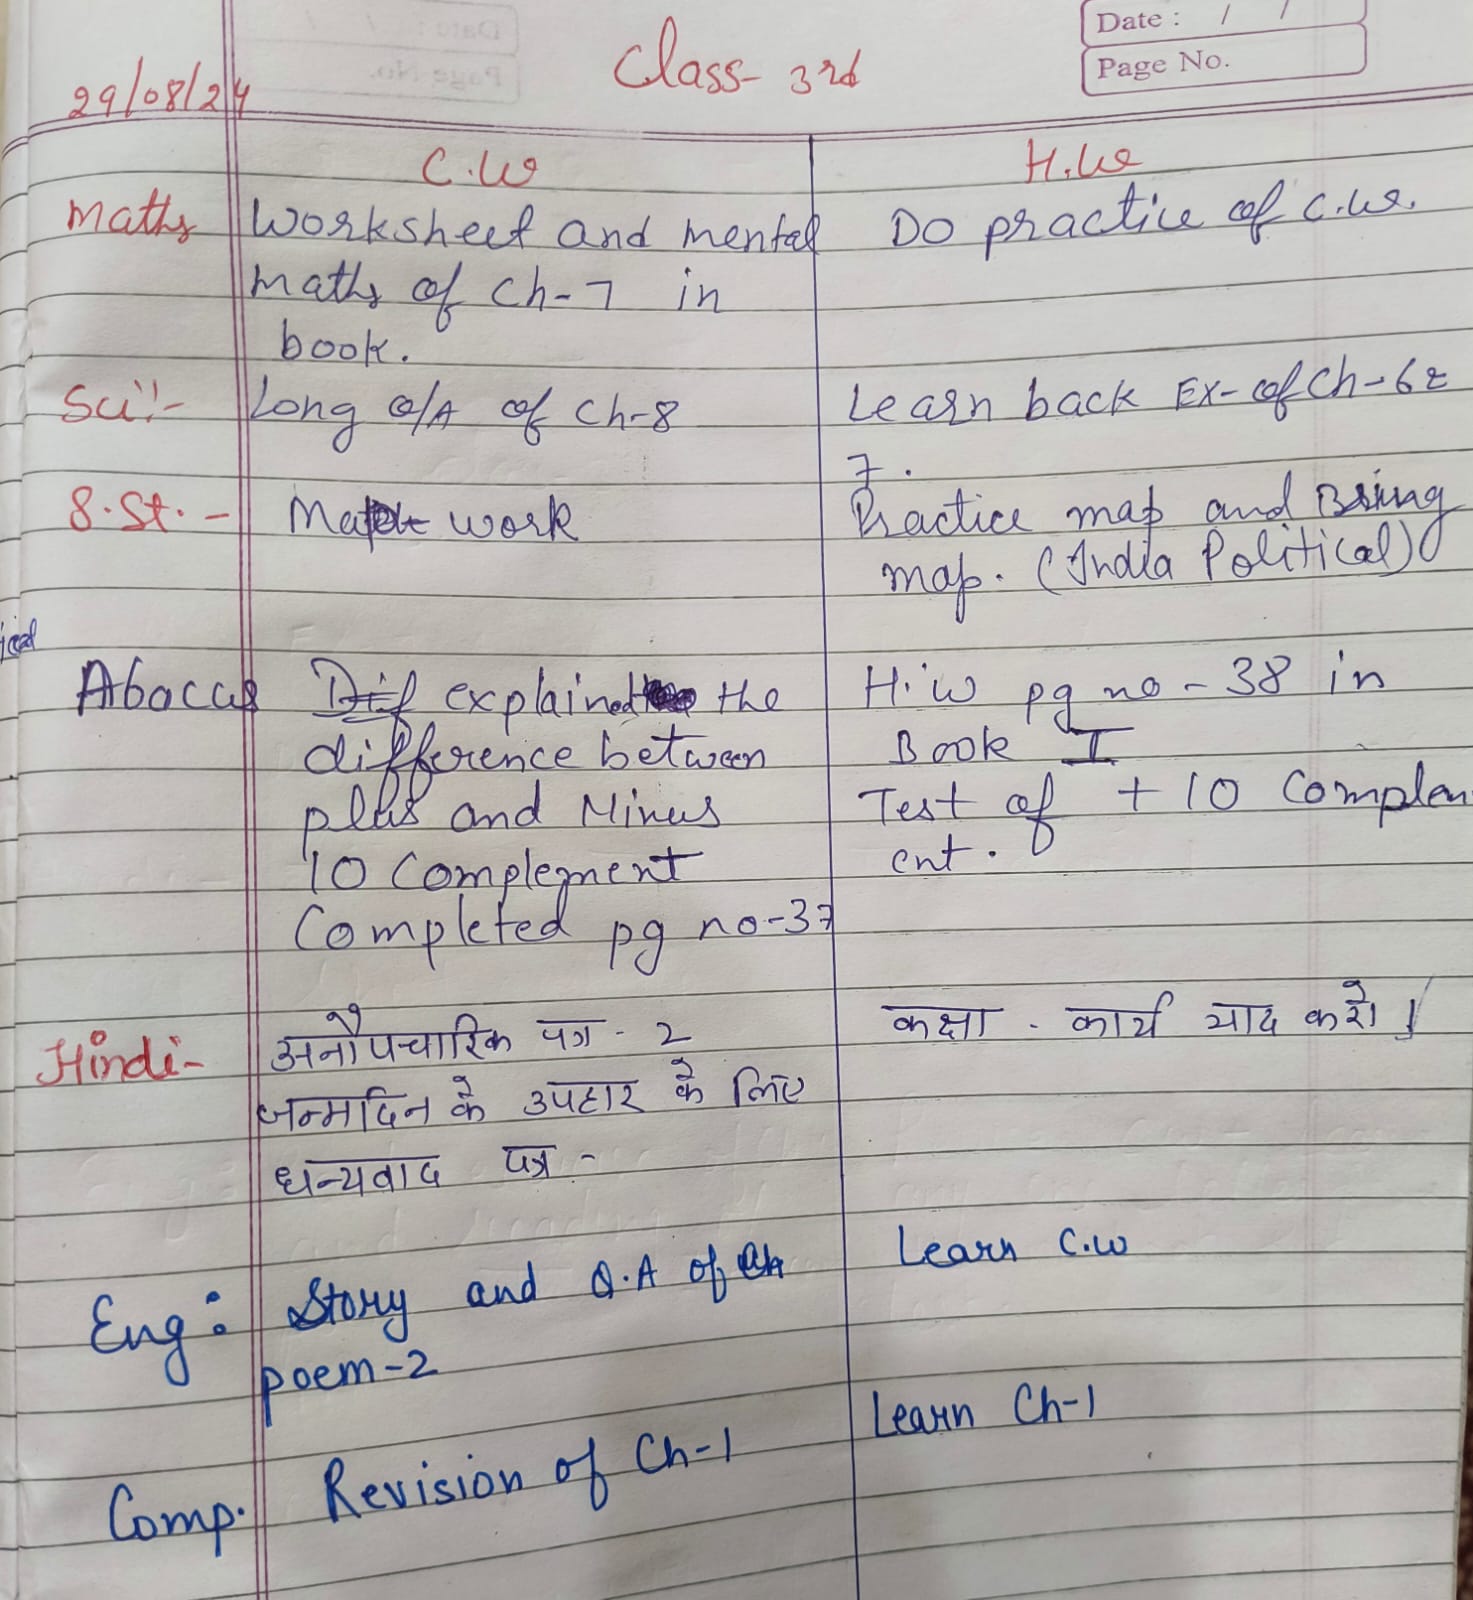 Date : / /
Page No.
29/08/24
Class- 3rd
C.W
H.W
Maths
Worksheet and mental
maths of Ch-7 in
book.
Do practice of C.W.
Sci:-
Long Q/A of Ch-8
Learn back Ex- of Ch-6 &
7.
S.St. -
work
Practice map and Bring
map. (India Political)
ical
Abacus
Dif explained the
difference between
plus and Minus
10 Complement
Completed pg no-37
H.W pg no - 38 in
Book I
Test of + 10 Complem
ent.
Hindi-
अनौपचारिक पत्र - 2
जन्मदिन के उपहार के लिए
धन्यवाद पत्र -
कक्षा - कार्य याद करो।
Eng:
Story and Q.A of
poem-2
Learn C.W
Comp.
Revision of Ch-1
Learn Ch-1